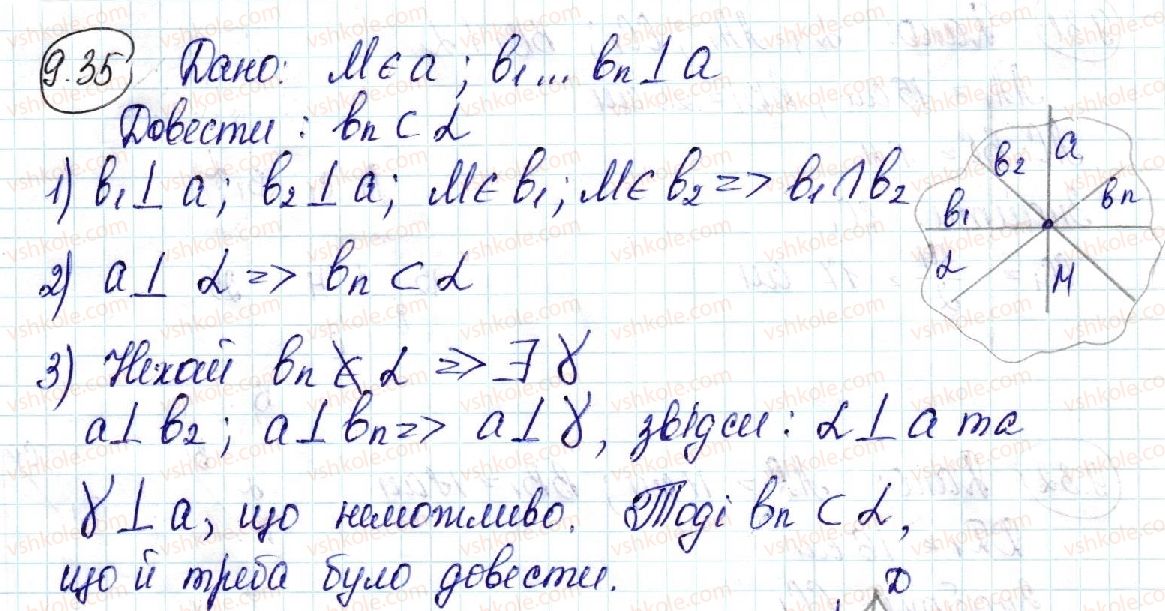 9.35 Дано: M∈a; b₁...bₙ⊥a
Довести: bₙ⊂α
1) b₁⊥a; b₂⊥a; M∈b₁; M∈b₂ => b₁∩b₂
2) a⊥α => bₙ⊂α
3) Нехай bₙ⊄α => ∃γ
a⊥b₂; a⊥bₙ => a⊥γ, звідси: α⊥a та
γ⊥a, що неможливо. Тоді bₙ⊂α,
що й треба було довести.
b₂ a
b₁ bₙ
α M
D
vshkole.com